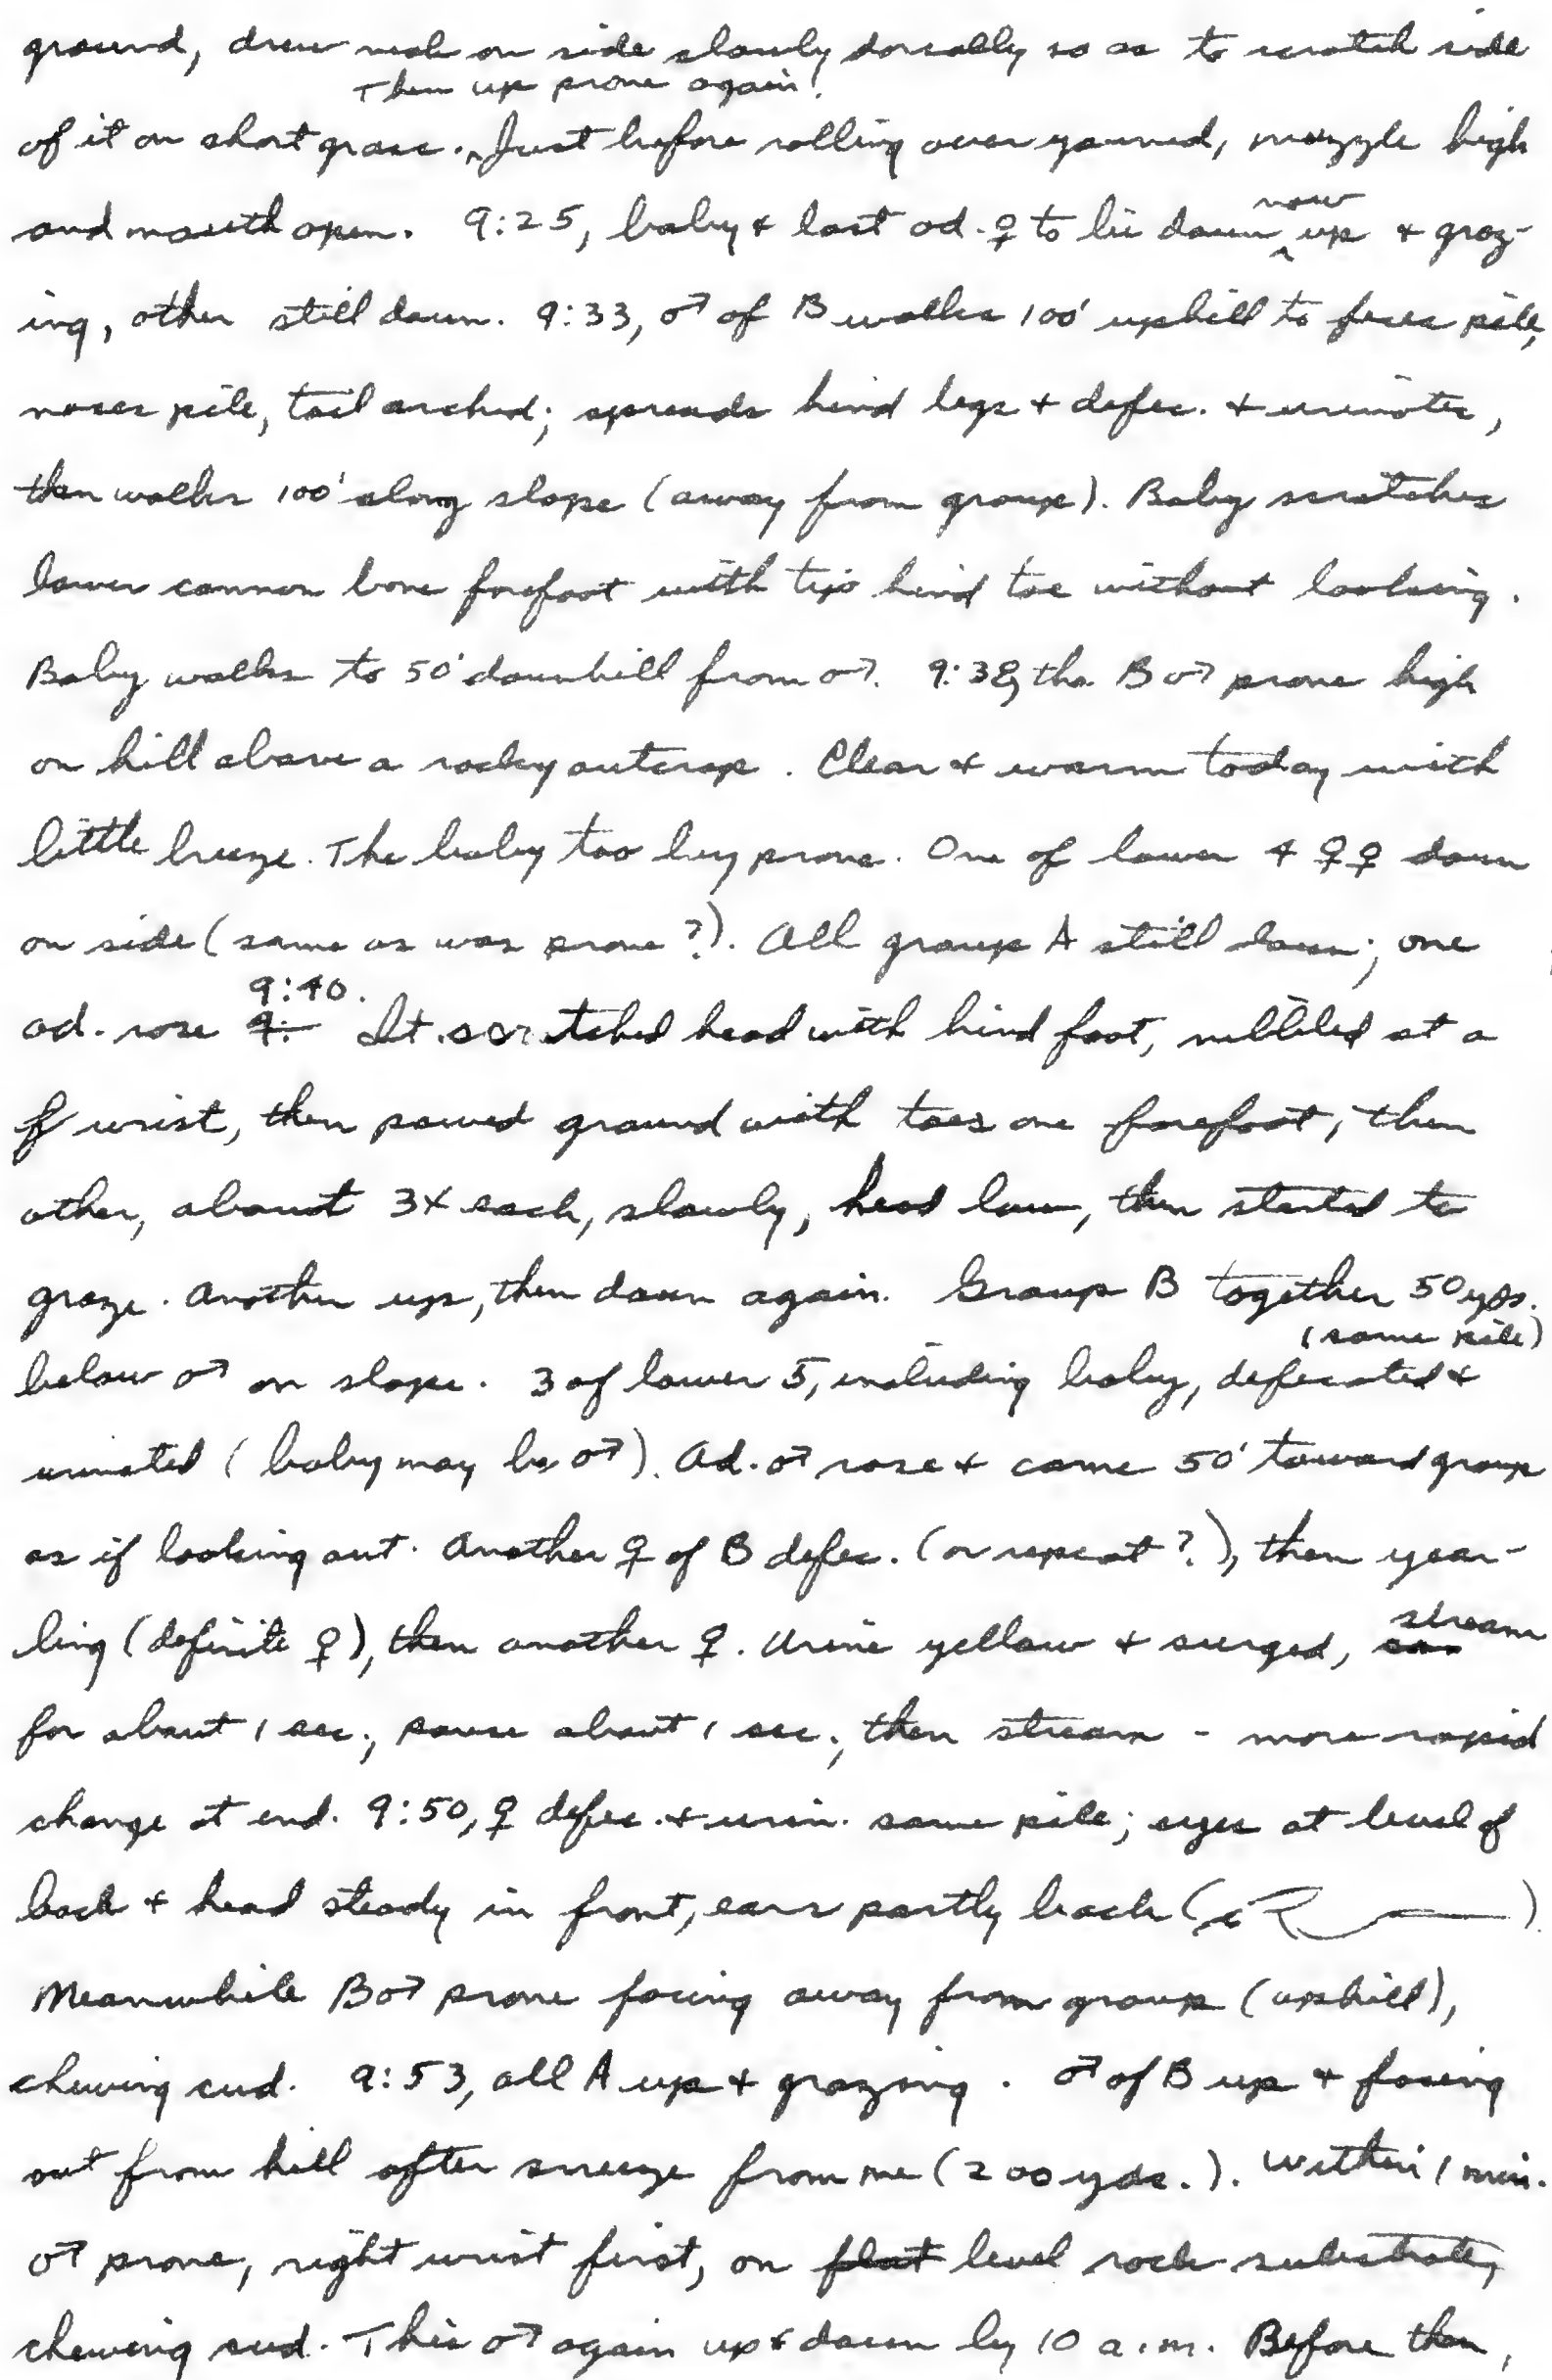 ground, drew neck on side slowly dorsally so as to scratch side
Then up prone again.
of it on short grass. ^ Just before rolling over yawned, muzzle high
now
and mouth open. 9:25, baby + last ad. ♀ to lie down ^ up + graz-
ing, other still down. 9:33, ♂ of B walks 100' uphill to feces pile,
noses pile, tail arched; spreads hind legs + defec. + urinates,
then walks 100' along slope (away from group). Baby scratches
lower cannon bone forefoot with tip hind toe without looking.
Baby walks to 50' downhill from ♂. 9:38, the B ♂ prone high
on hill above a rocky outcrop. Clear + warm today with
little breeze. The baby too lay prone. One of lower 4 ♀♀ down
on side (same as was prone?). All group A still down; one
9:40.
ad. rose 9: It scratched head with hind foot, nibbled at a
f wrist, then pawed ground with toes one forefoot, then
other, about 3X each, slowly, head low, then started to
graze. Another up, then down again. Group B together 50 yds.
(same pile)
below ♂ on slope. 3 of lower 5, including baby, defecated +
urinated (baby may be ♂). Ad. ♂ rose + came 50' toward group
as if looking out. Another ♀ of B defec. (or repeat?), then year-
stream
ling (definite ♀), then another ♀. Urine yellow + surged,
for about 1 sec., pause about 1 sec., then stream - more rapid
change at end. 9:50, ♀ defec. + urin. same pile; eyes at level of
back + head steady in front, ears partly back ( ).
Meanwhile B ♂ prone facing away from group (uphill),
chewing cud. 9:53, all A up + grazing. ♂ of B up + facing
out from hill after sneeze from me (200 yds.). Within 1 min.
♂ prone, right wrist first, on flat level rock substrate,
chewing cud. This ♂ again up + down by 10 a.m. Before then,